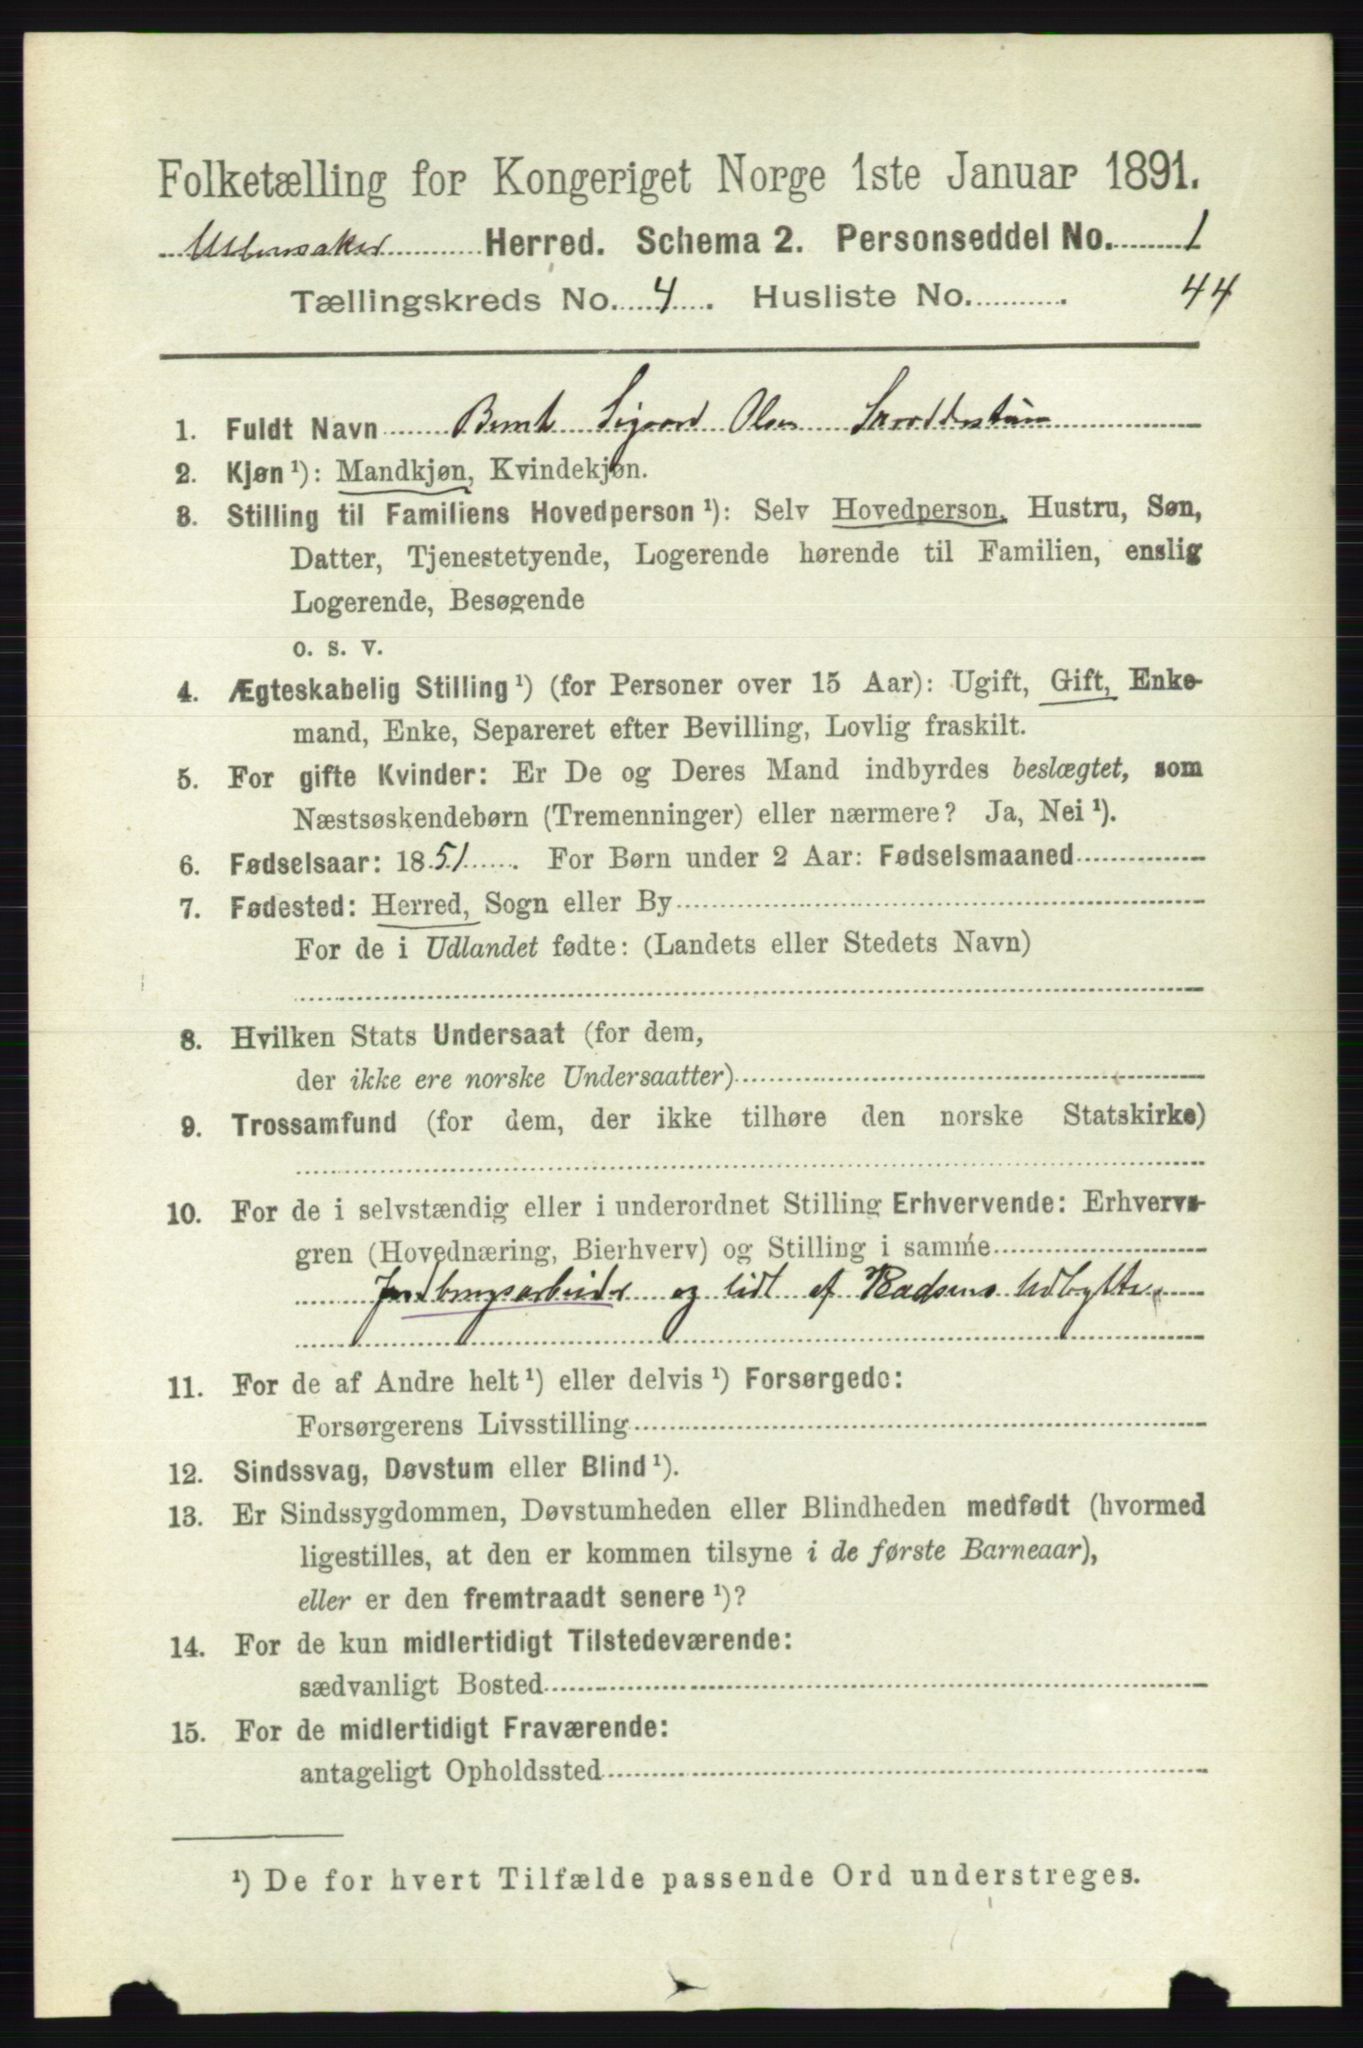 Folketælling for Kongeriget Norge 1ste Januar 1891.
Ullensaker Herred. Schema 2. Personseddel No. 1
Tællingskreds No. 4. Husliste No. 44
1. Fuldt Navn Bernt Sigvard Olsen
2. Kjøn ¹): Mandkjøn, Kvindekjøn.
3. Stilling til Familiens Hovedperson ¹): Selv Hovedperson, Hustru, Søn,
Datter, Tjenestetyende, Logerende hørende til Familien, enslig
Logerende, Besøgende
o. s. v.
4. Ægteskabelig Stilling ¹) (for Personer over 15 Aar): Ugift, Gift, Enke-
mand, Enke, Separeret efter Bevilling, Lovlig fraskilt.
5. For gifte Kvinder: Er De og Deres Mand indbyrdes beslægtet, som
Næstsøskendebørn (Tremenninger) eller nærmere? Ja, Nei ¹).
6. Fødselsaar: 1851. For Børn under 2 Aar: Fødselsmaaned
7. Fødested: Herred, Sogn eller By
For de i Udlandet fødte: (Landets eller Stedets Navn)
8. Hvilken Stats Undersaat (for dem,
der ikke ere norske Undersaatter)
9. Trossamfund (for dem, der ikke tilhøre den norske Statskirke)
10. For de i selvstændig eller i underordnet Stilling Erhvervende: Erhvervs-
gren (Hovednæring, Bierhverv) og Stilling i samme
Jordbrugsarbeider og lidt af Pladsens Udbytte.
11. For de af Andre helt ¹) eller delvis ¹) Forsørgede:
Forsørgerens Livsstilling
12. Sindssvag, Døvstum eller Blind ¹).
13. Er Sindssygdommen, Døvstumheden eller Blindheden medfødt (hvormed
ligestilles, at den er kommen tilsyne i de første Barneaar),
eller er den fremtraadt senere ¹)?
14. For de kun midlertidigt Tilstedeværende:
sædvanligt Bosted
15. For de midlertidigt Fraværende:
antageligt Opholdssted
¹) De for hvert Tilfælde passende Ord understreges.